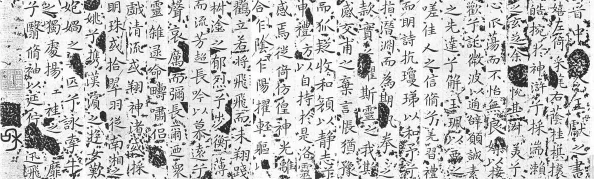 晉中書令王獻之書
嬉左倚采旄右蔭桂旗攘
皓腕於神滸兮採湍瀨
之玄芝余情悅其淑美兮
心振蕩而不怡無良
歡兮託微波以通辭願誠素
之先達兮解玉珮
嗟佳人之信脩兮羌習禮
而明詩抗瓊珶以和予兮
指潛淵而為期
款實兮懼斯靈之我欺
感交甫之棄言悵猶豫
而狐疑收和顏以靜志兮
申禮防以自持於是洛靈
感焉徙倚仿偟神光離
合乍陰乍陽擢輕軀
鶴立若將飛飛而未翔踐
椒塗之郁烈兮步蘅薄
而流芳超長吟以慕遠兮
聲哀厲而彌長爾迺衆
靈雜遝命疇嘯侶
戲清流或翔神渚或採
明珠或拾翠羽從南湘之
姚兮攜漢濱之游女歎
媧之無匹兮詠牽牛
之獨處揚輕袿之猗靡
兮翳脩袖以延佇迅飛